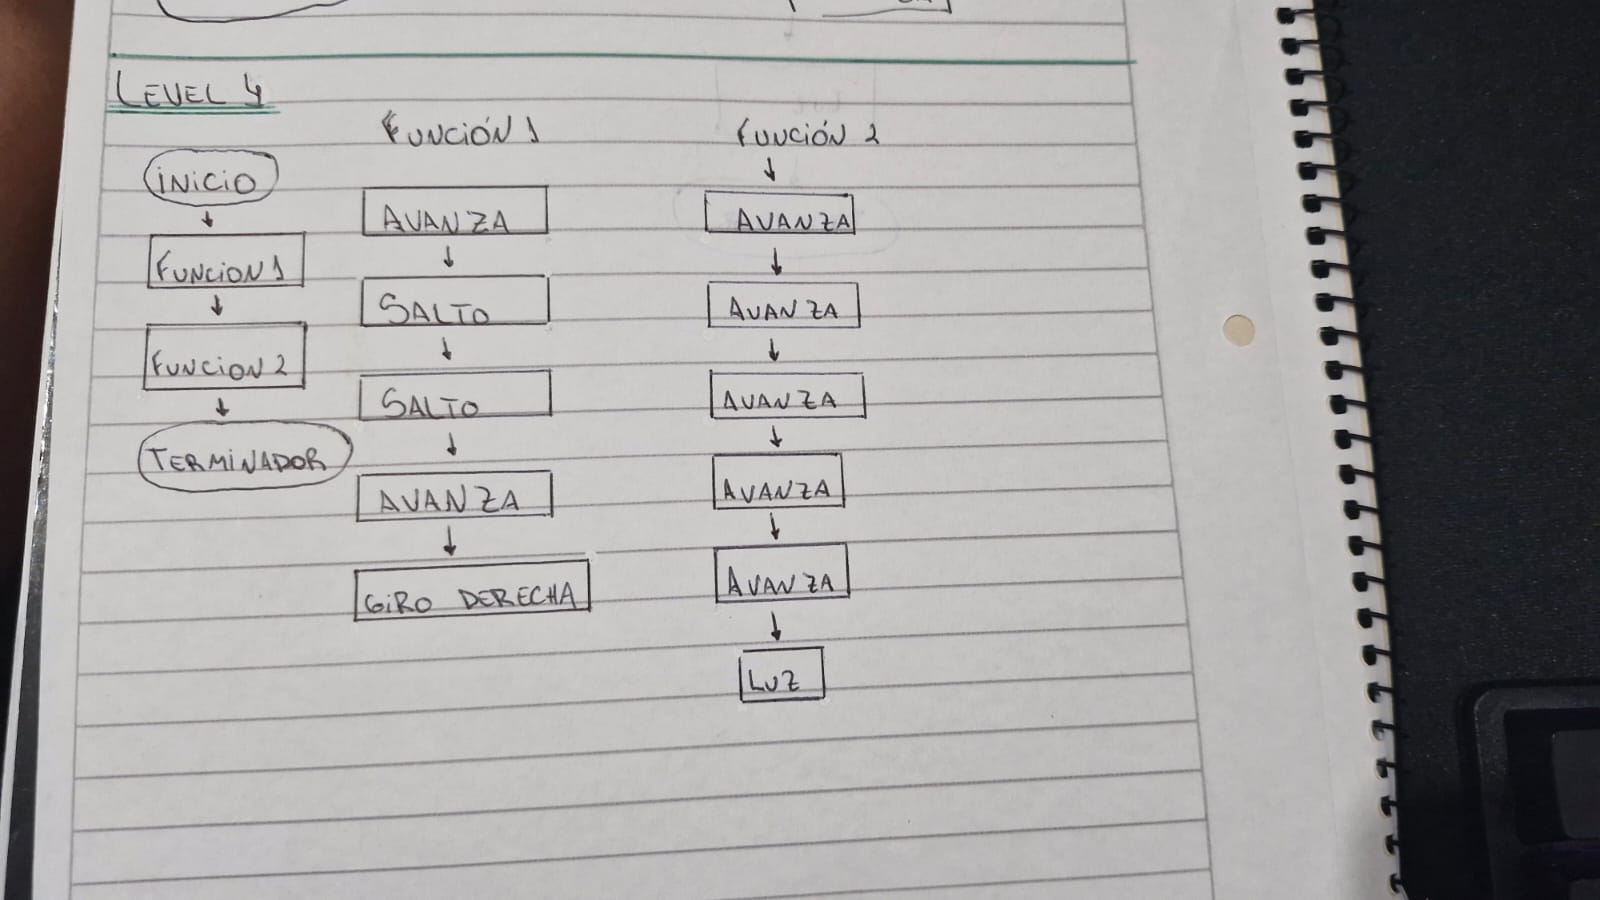 LEVEL 4
INICIO
FUNCION 1
FUNCION 2
TERMINADOR
FUNCIÓN 1
AVANZA
SALTO
SALTO
AVANZA
GIRO DERECHA
FUNCIÓN 2
AVANZA
AVANZA
AVANZA
AVANZA
AVANZA
LUZ